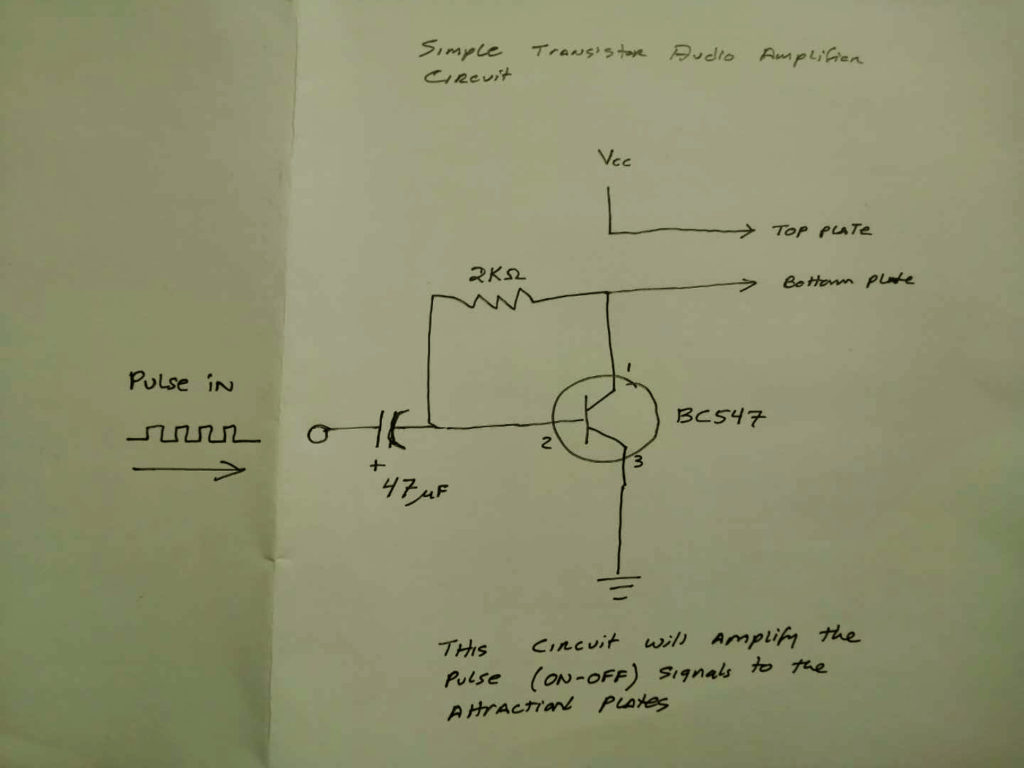 Simple Transistor Audio Amplifier
Circuit
Vcc
TOP PLATE
2KΩ
Bottom plate
Pulse in
1
BC547
2
3
+
47µF
THis Circuit will Amplify the
Pulse (ON-OFF) Signals to the
Attraction Plates